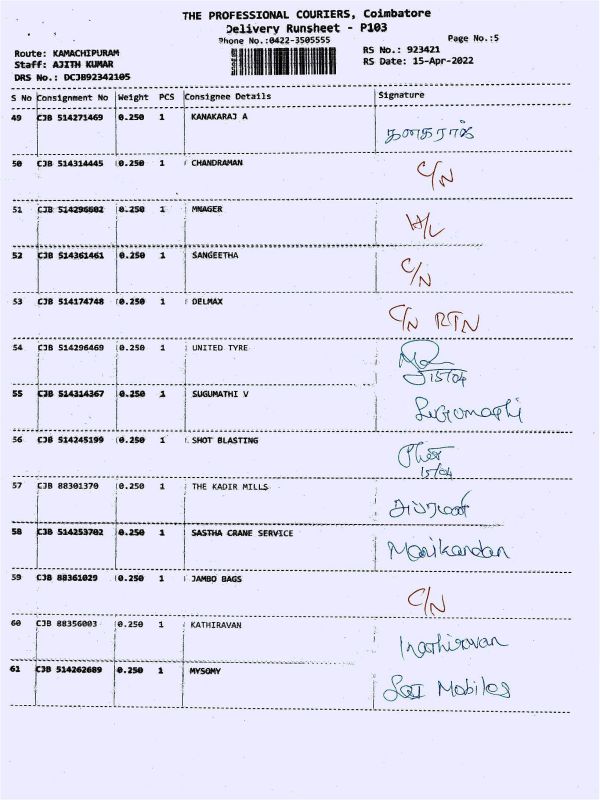 THE PROFESSIONAL COURIERS, Coimbatore
Delivery Runsheet - P103
Phone No.:0422-3505555
Page No.:5
Route: KAMACHIPURAM
RS No.: 923421
Staff: AJITH KUMAR
RS Date: 15-Apr-2022
DRS No.: DCJB92342105
S No Consignment No Weight PCS Consignee Details Signature
49 CJB 514271469 0.250 1 KANAKARAJ A கனகராஜ்
50 CJB 514314445 0.250 1 CHANDRAMAN C/N
51 CJB 514296602 0.250 1 MNAGER H/L
52 CJB 514361461 0.250 1 SANGEETHA C/N
53 CJB 514174748 0.250 1 DELMAX C/N RTN
54 CJB 514296469 0.250 1 UNITED TYRE
15/04
55 CJB 514314367 0.250 1 SUGUMATHI V Sugumathi
56 CJB 514245199 0.250 1 SHOT BLASTING
15/04
57 CJB 88301370 0.250 1 THE KADIR MILLS
58 CJB 514253702 0.250 1 SASTHA CRANE SERVICE Manikandan
59 CJB 88361029 0.250 1 JAMBO BAGS C/N
60 CJB 88356003 0.250 1 KATHIRAVAN Kathiravan
61 CJB 514262689 0.250 1 MYSOMY Sai Mobiles